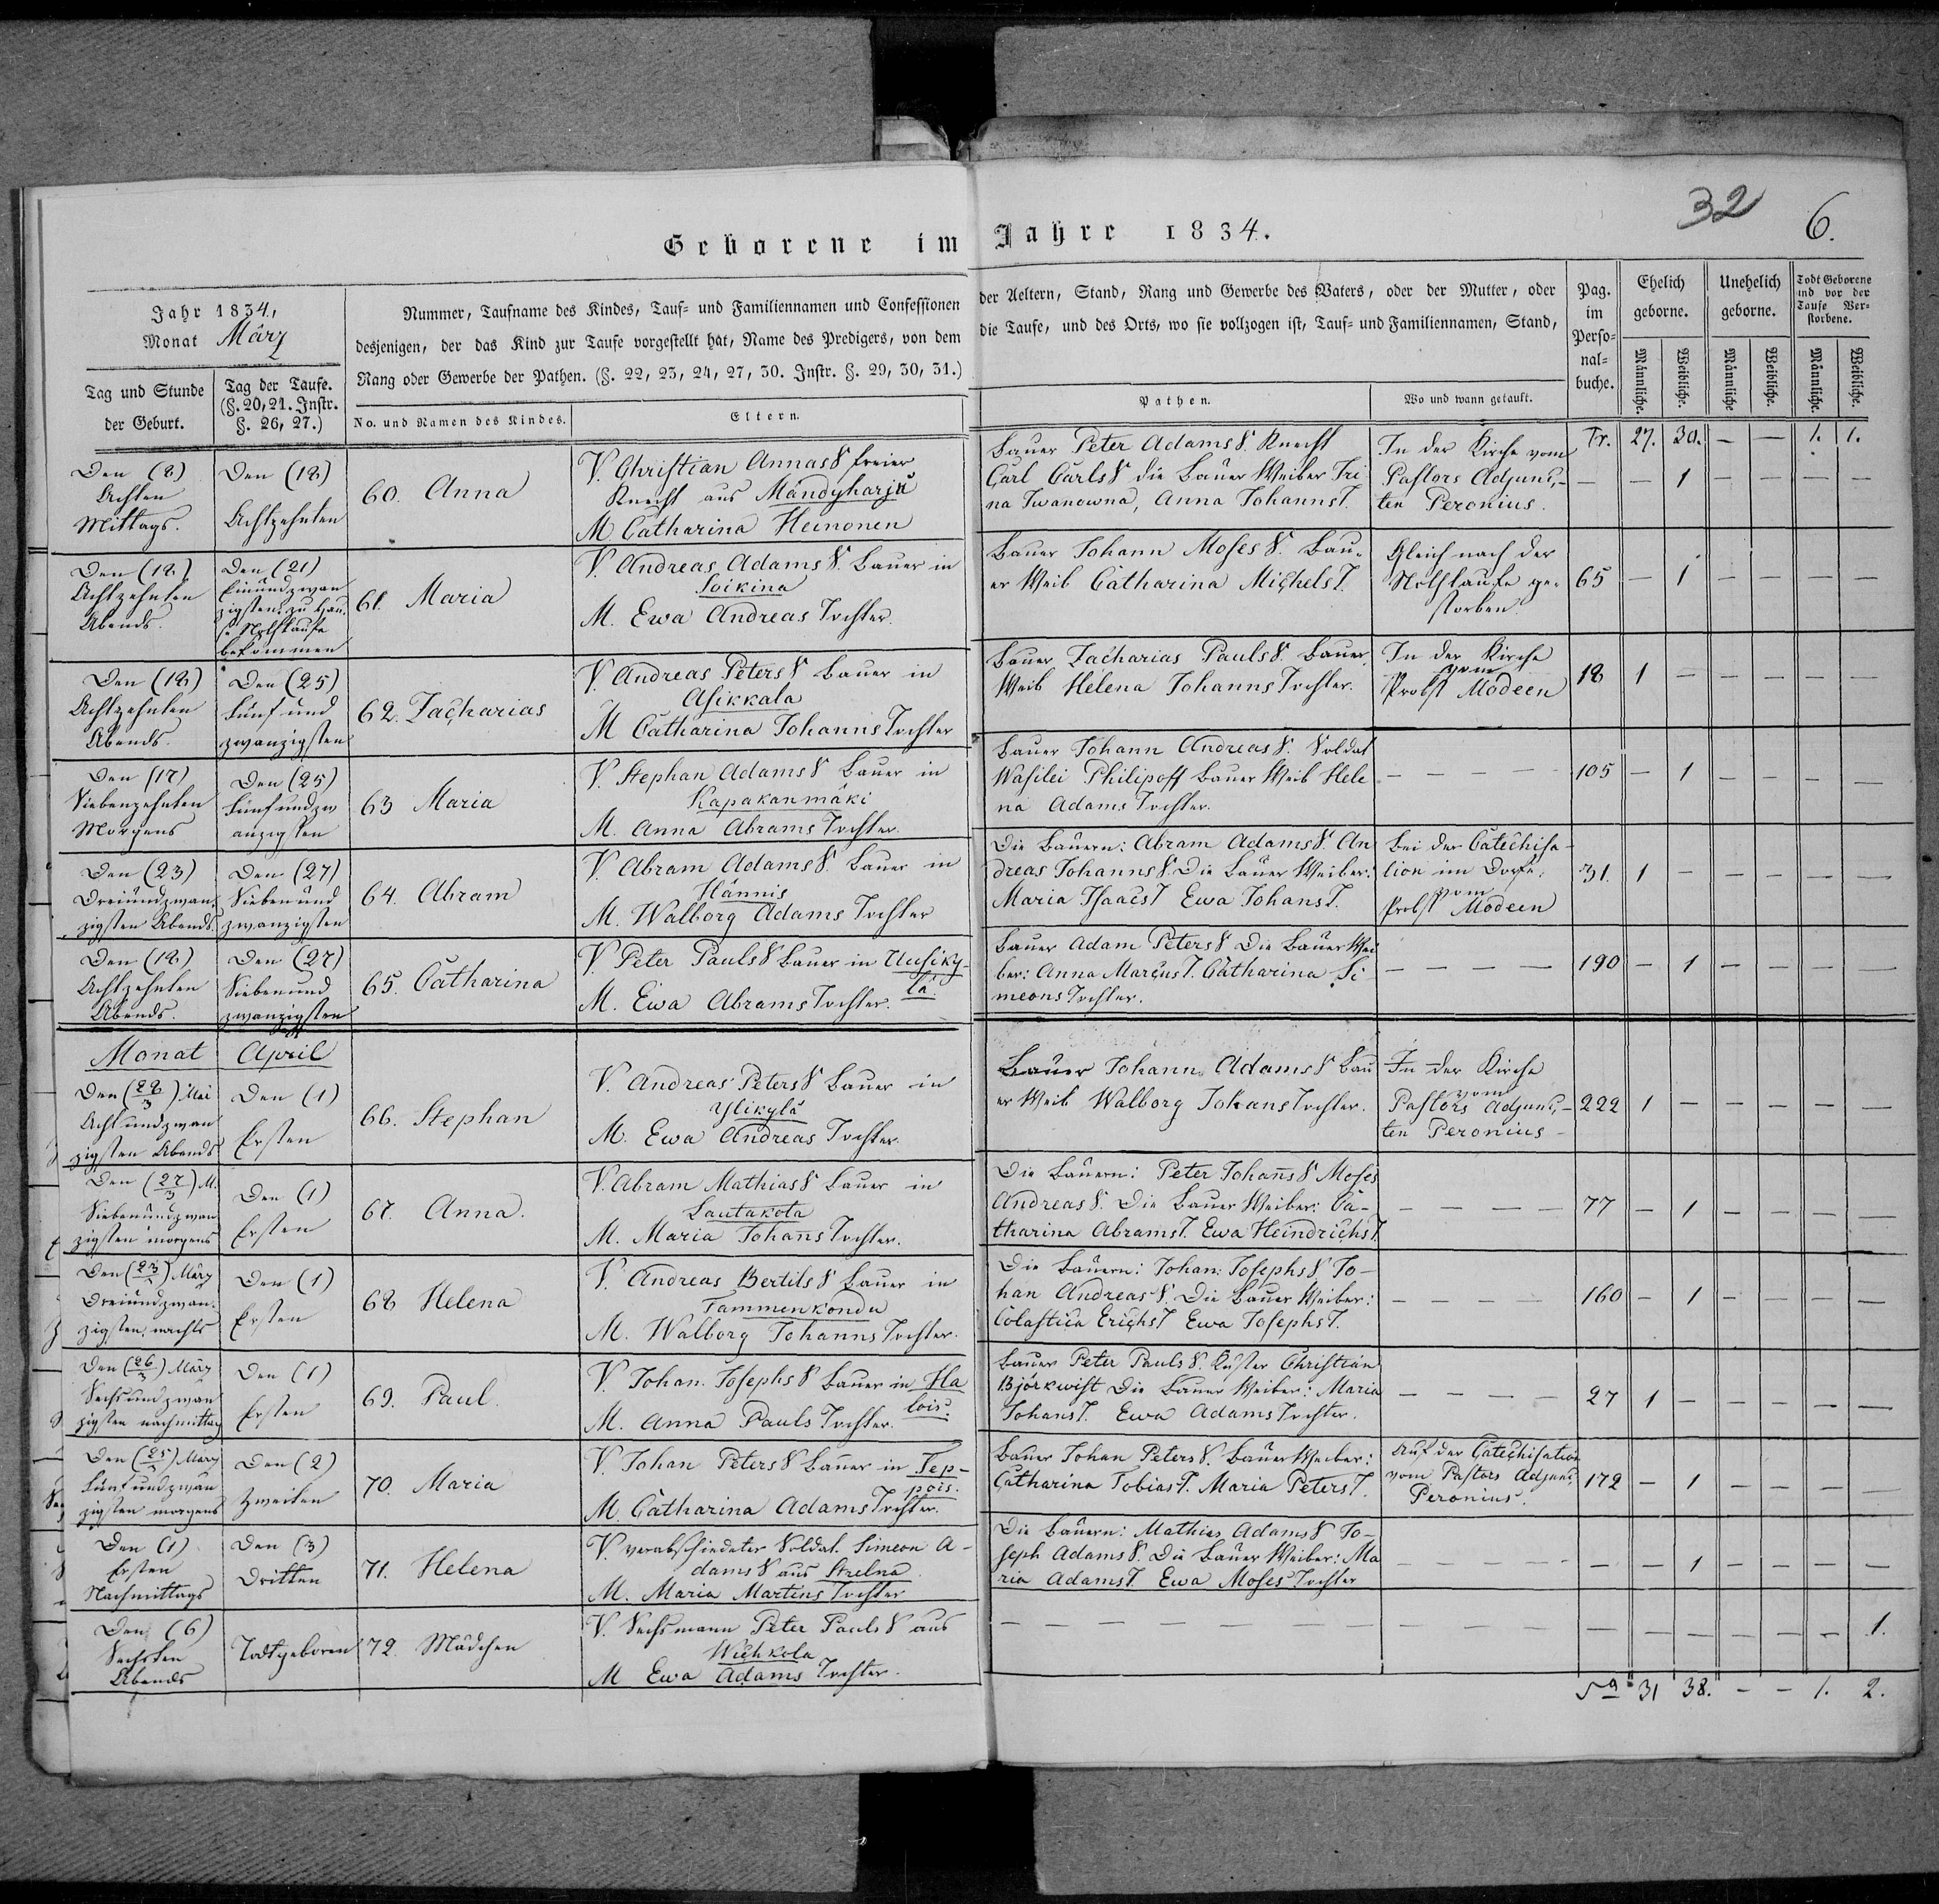 32
6.
Geborene im Jahre 1834.
Jahr 1834,
Monat März
Tag und Stunde
der Geburt.
Tag der Taufe.
(§. 20, 21. Instr.
§. 26, 27.)
Nummer, Taufname des Kindes, Tauf- und Familiennamen und Confessionen
der Aeltern, Stand, Rang und Gewerbe des Vaters, oder der Mutter, oder
desjenigen, der das Kind zur Taufe vorgestellt hat, Name des Predigers, von dem
die Taufe, und des Orts, wo sie vollzogen ist, Tauf- und Familiennamen, Stand,
Rang oder Gewerbe der Pathen. (§. 22, 23, 24, 27, 30. Instr. §. 29, 30, 31.)
No. und Namen des Kindes.
Eltern.
Pathen.
Wo und wann getauft.
Pag.
im
Perso-
nal-
buche.
Ehelich
geborne.
Unehelich
geborne.
Todt Geborene
und vor der
Taufe Ver-
storbene.
Männliche.
Weibliche.
Männliche
Weibliche.
Männliche.
Weibliche.
Tr. 27. 30. — — 1. 1.
Den (8)
Achten
Mittags.
Den (18)
Achtzehnten
60. Anna
V. Christian Annas S freier
Knecht aus Mändyharju
M. Catharina Heinonen
Bauer Peter Adams S. Knecht
Carl Carls S die Bauer Weiber Iri
na Iwanowna, Anna Johanns T.
In der Kirche vom
Pastors Adjunc-
ten Peronius.
— — 1 — — — —
Den (18)
Achtzehnten
Abends.
Den (21)
Einundzwan
zigsten zu Hau-
se Nothtaufe
bekommen
61. Maria
V. Andreas Adams S. Bauer in
Soikina
M. Ewa Andreas Tochter.
Bauer Johann Moses S. Bau-
er Weib Catharina Michels T.
Gleich nach der
Nothtaufe ge-
storben.
65 — 1 — — — —
Den (18)
Achtzehnten
Abends.
Den (25)
Fünf und
zwanzigsten
62. Zacharias
V. Andreas Peters S Bauer in
Asikkala
M Catharina Johanns Tochter
Bauer Zacharias Pauls S. Bauer
Weib Helena Johanns Tochter.
In der Kirche
vom
Probst Modeen
18 1 — — — — —
Den (17)
Siebenzehnten
Morgens
Den (25)
Fünfundzw
anzigsten
63 Maria
V. Stephan Adams S Bauer in
Kapakanmäki
M. Anna Abrams Tochter.
Bauer Johann Andreas S. Soldat
Wasilei Philipoff Bauer Weib Hele
na Adams Tochter.
— — — —
105 — 1 — — — —
Den (23)
Dreiundzwan-
zigsten Abends.
Den (27)
Siebenund
zwanzigsten
64. Abram
V. Abram Adams S. Bauer in
Hännis
M. Walborg Adams Tochter
Die Bauern: Abram Adams S. An
dreas Johanns S. Die Bauer Weiber:
Maria Isaacs T Ewa Johans T.
Bei der Catechisa-
tion im Dorfe.
vom
Probst Modeen
31. 1 — — — — —
Den (18)
Achtzehnten
Abends.
Den (27)
Siebenund
zwanzigsten
65. Catharina
V. Peter Pauls S Bauer in Uusiky-
lä.
M. Ewa Abrams Tochter.
Bauer Adam Peters S Die Bauer Wei
ber: Anna Marcus T. Catharina Si-
meons Tochter.
— — — —
190 — 1 — — — —
Monat April
Den (28/3) Mai
Acht undzwan
zigsten Abends
Den (1)
Ersten
66. Stephan
V. Andreas Peters S Bauer in
Ylikylä
M. Ewa Andreas Tochter.
Bauer Johann Adams S Bau
er Weib Walborg Johans Tochter.
In der Kirche
vom
Pastors Adjunc-
ten Peronius
222 1 — — — — —
Den (27/3) M.
Siebenundzwan
zigsten morgens
Den (1)
Ersten
67. Anna.
V. Abram Mathias S Bauer in
Lautakota
M. Maria Johans Tochter.
Die Bauern: Peter Johans S Moses
Andreas S. Die Bauer Weiber: Ca-
tharina Abrams T. Ewa Heindrichs T.
— — — —
77 — 1 — — — —
Den (23/3) März
Dreiundzwan-
zigsten, nachts
Den (1)
Ersten
68 Helena
V. Andreas Bertils S Bauer in
Tammenkondu
M. Walborg Johanns Tochter.
Die Bauern: Johan: Josephs S Jo-
han Andreas S. Die Bauer Weiber:
Colastica Erichs T Ewa Josephs T.
— — — —
160 — 1 — — — —
Den (26/3) März
Sechsundzwan
zigsten nachmittag
Den (1)
Ersten
69. Paul.
V. Johan. Josephs S Bauer in Ha
lois.
M. Anna Pauls Tochter.
Bauer Peter Pauls S. Küster Christian
Björkwist Die Bauer Weiber: Maria
Johans T. Ewa Adams Tochter.
— — — —
27 1 — — — — —
Den (25/3) März
Fünf undzwan
zigsten morgens
Den (2)
Zweiten
70. Maria
V. Johan Peters S Bauer in Tep-
pois.
M. Catharina Adams Tochter.
Bauer Johan Peters S. Bauer Weiber:
Catharina Tobias T. Maria Peters T.
Auf der Catechisation
vom Pastors Adjunc.
Peronius.
172 — 1 — — — —
Den (1)
Ersten
Nachmittags
Den (3)
Dritten
71. Helena
V. verabschiedeter Soldat Simeon A-
dams S aus Strelna.
M. Maria Martins Tochter
Die Bauern: Mathias Adams S Jo-
seph Adams S. Die Bauer Weiber: Ma
ria Adams T. Ewa Moses Tochter
— — — —
— — 1 — — — —
Den (6)
Sechsten
Abends
Todtgeboren
72. Mädchen
V. Sechsmann Peter Pauls S aus
Wichkola
M Ewa Adams Tochter.
— — — — — — — — — 1.
Sa 31 38. — — 1. 2.